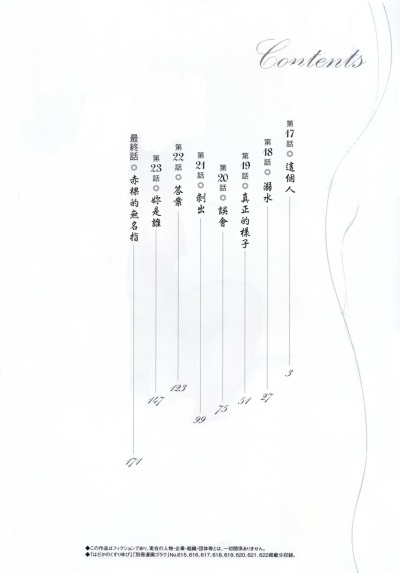 Contents
第17話◎這個人
3
第18話◎溺水
27
第19話◎真正的樣子
51
第20話◎誤會
75
第21話◎剝出
99
第22話◎答案
123
第23話◎妳是誰
147
最終話◎赤裸的無名指
171
◆この作品はフィクションであり、実在の人物・企業・組織・団体等とは、一切関係ありません。
◆「はだかのくすりゆび」「別冊漫画ゴラク」No.615、616、617、618、619、620、621、622掲載分収録。